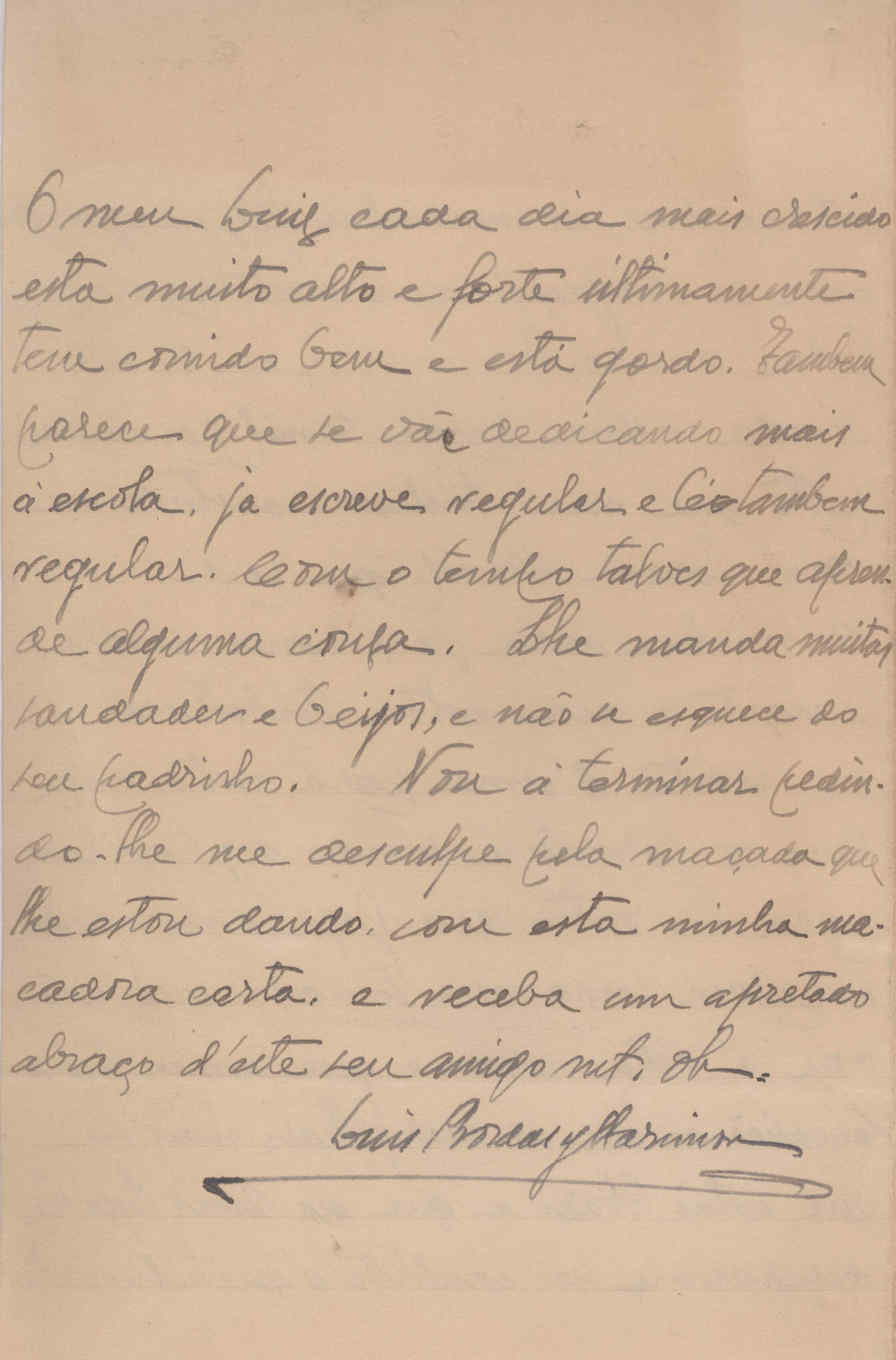 O meu Luiz cada dia mais crescido
esta muito alto e forte últimamente
tem comido bem e está gordo. Tambem
parece que se vãe dedicando mais
á escola, ja escreve regular e lê tambem
regular. Com o tempo talves que apren-
de alguma cousa. Lhe manda muitas
saudades e beijos, e não se esquece do
seu padrinho. Vou á terminar pedin-
do-lhe me desculpe pela maçada que
lhe estou dando, com esta minha ma-
cadora carta, e receba um apretado
abraço d'este seu amigo mt. ob.
Luis Bordas y